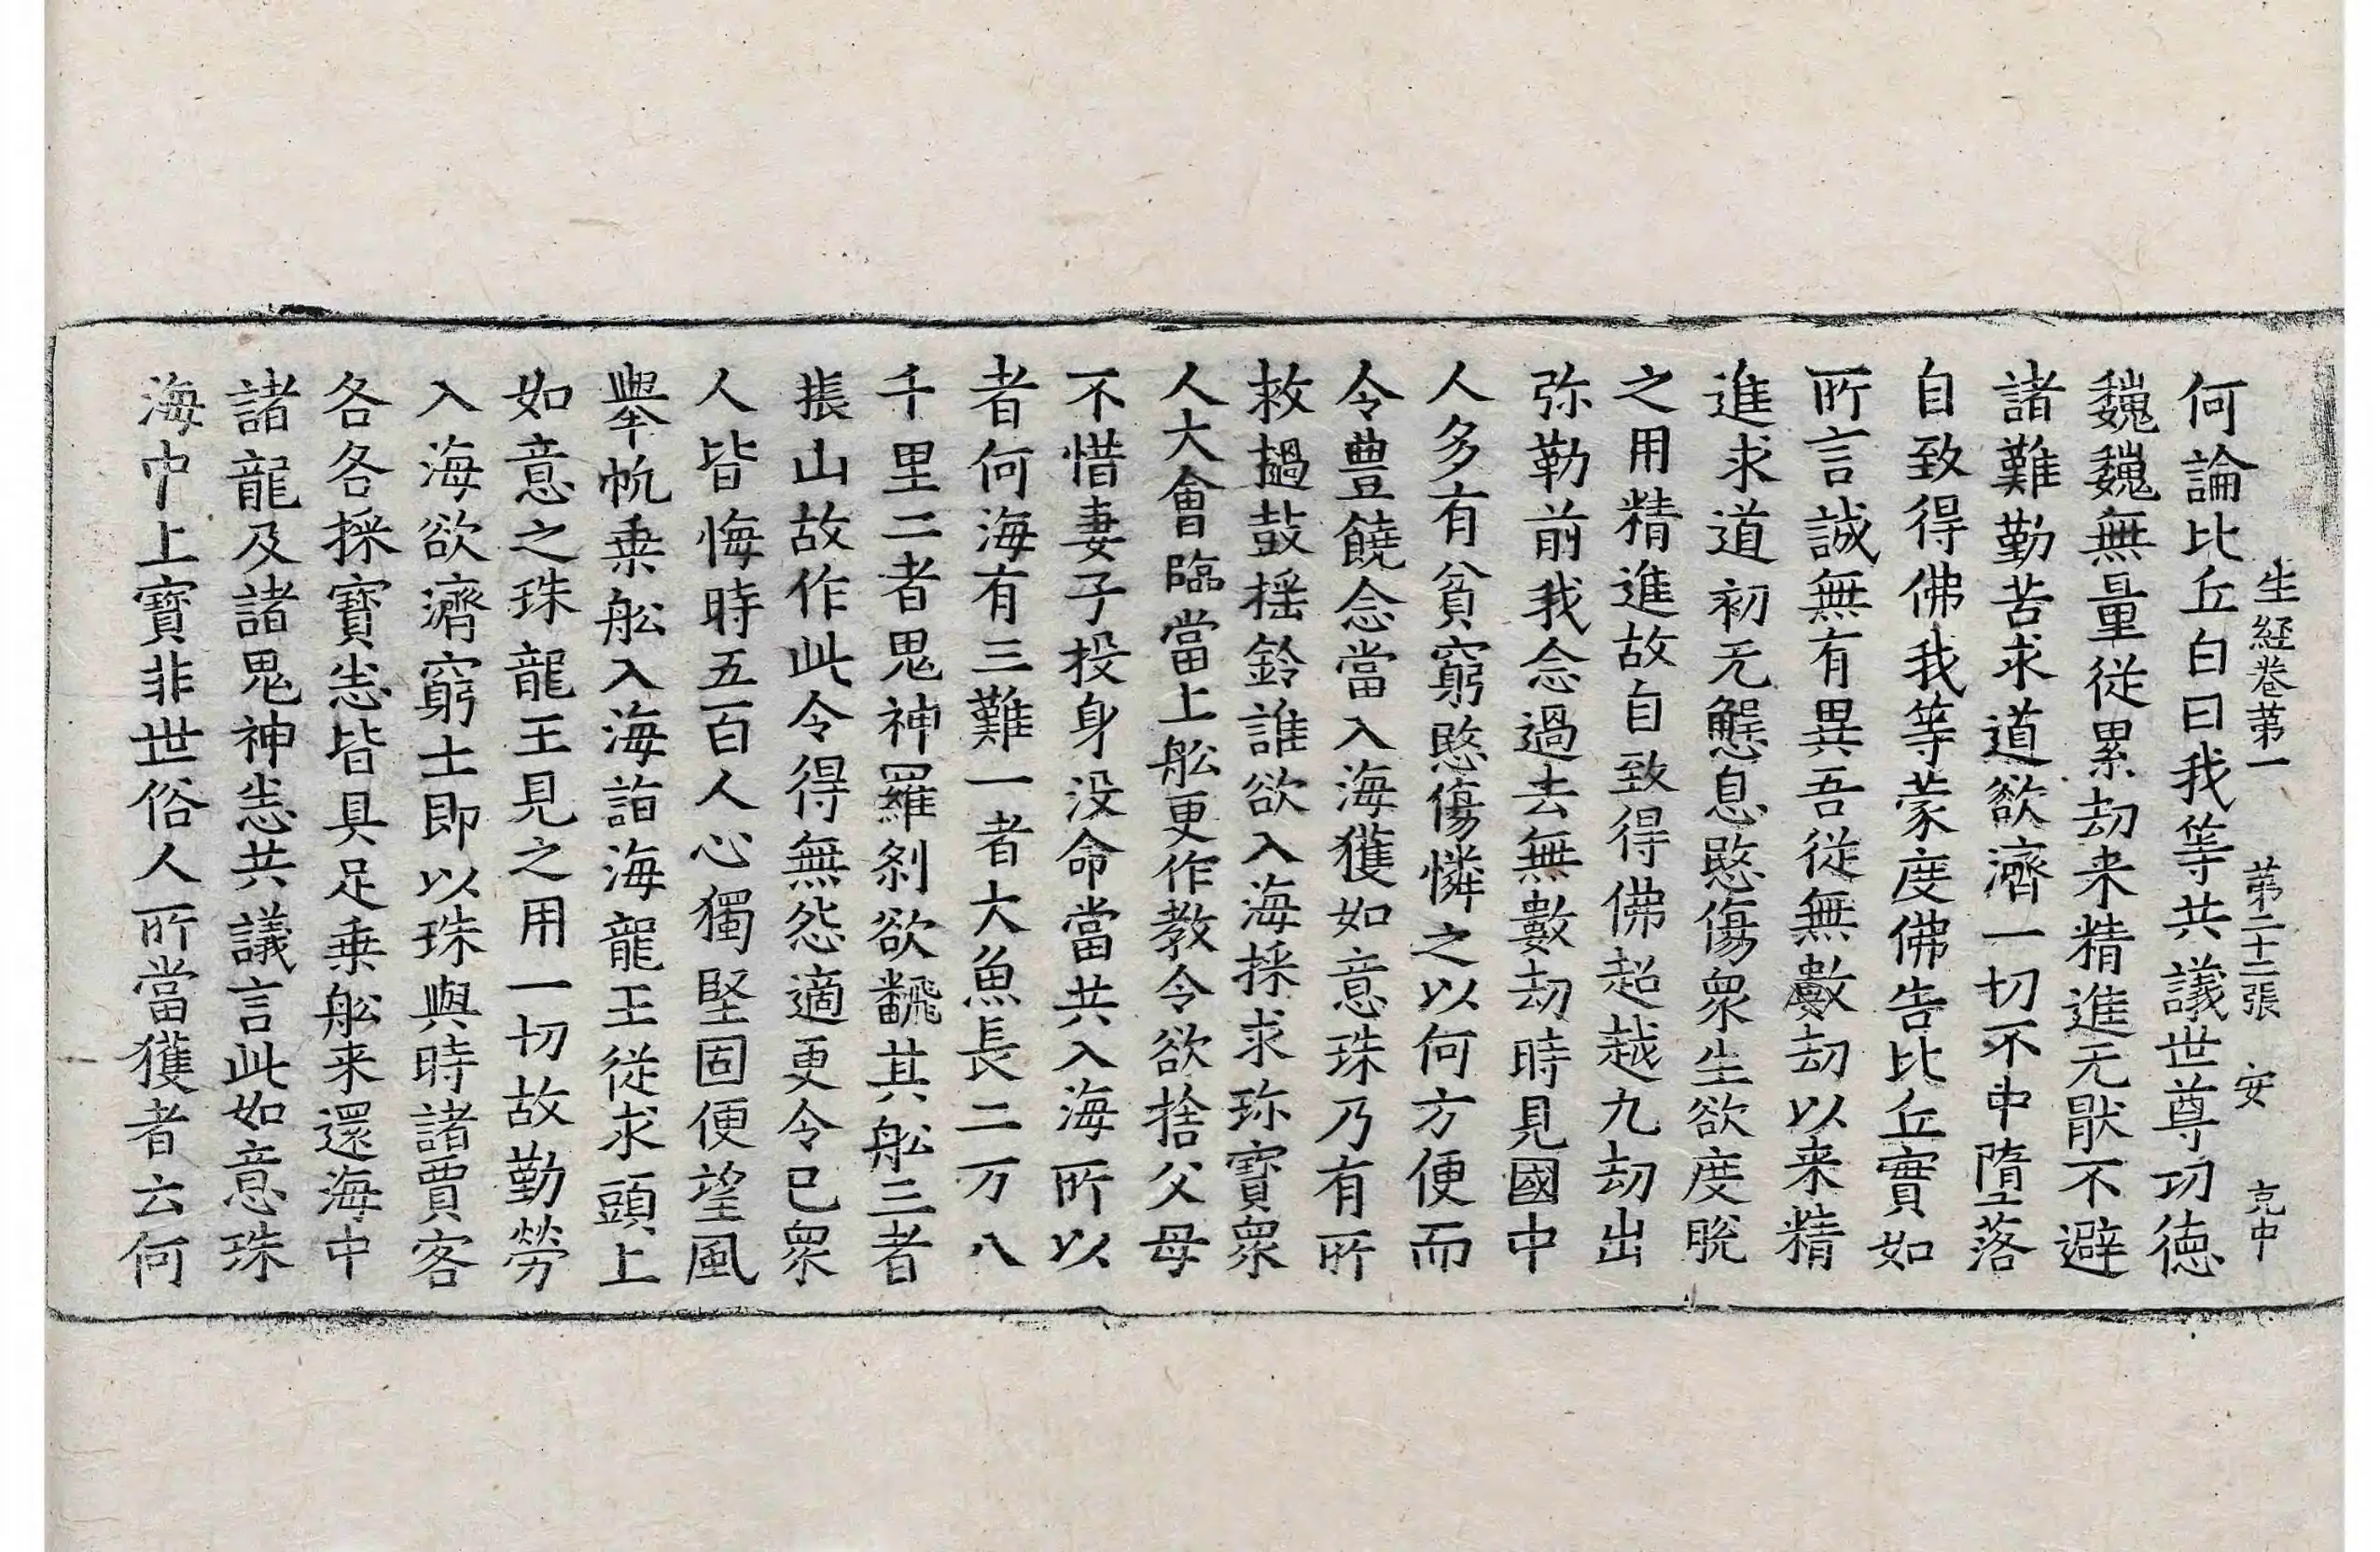 生經卷第一 第二十二張 安 克中
何論比丘白曰我等共議世尊功德
巍巍無量從累劫来精進无猒不避
諸難勤苦求道欲濟一切不中墮落
自致得佛我等蒙度佛告比丘實如
所言誠無有異吾從無數劫以来精
進求道初无懈息愍傷衆生欲度脫
之用精進故自致得佛超越九劫出
弥勒前我念過去無數劫時見國中
人多有貧窮愍傷憐之以何方便而
令豊饒念當入海獲如意珠乃有所
救撾鼓搖鈴誰欲入海採求珎寶衆
人大會臨當上舩更作教令欲捨父母
不惜妻子投身没命當共入海所以
者何海有三難一者大魚長二万八
千里二者鬼神羅剎欲飜其舩三者
振山故作此令得無怨適更令已衆
人皆悔時五百人心獨堅固便望風
舉帆乗舩入海詣海龍王從求頭上
如意之珠龍王見之用一切故勤勞
入海欲濟窮士即以珠與時諸賈客
各各採寶悉皆具足乗舩来還海中
諸龍及諸鬼神悉共議言此如意珠
海中上寶非世俗人所當獲者云何